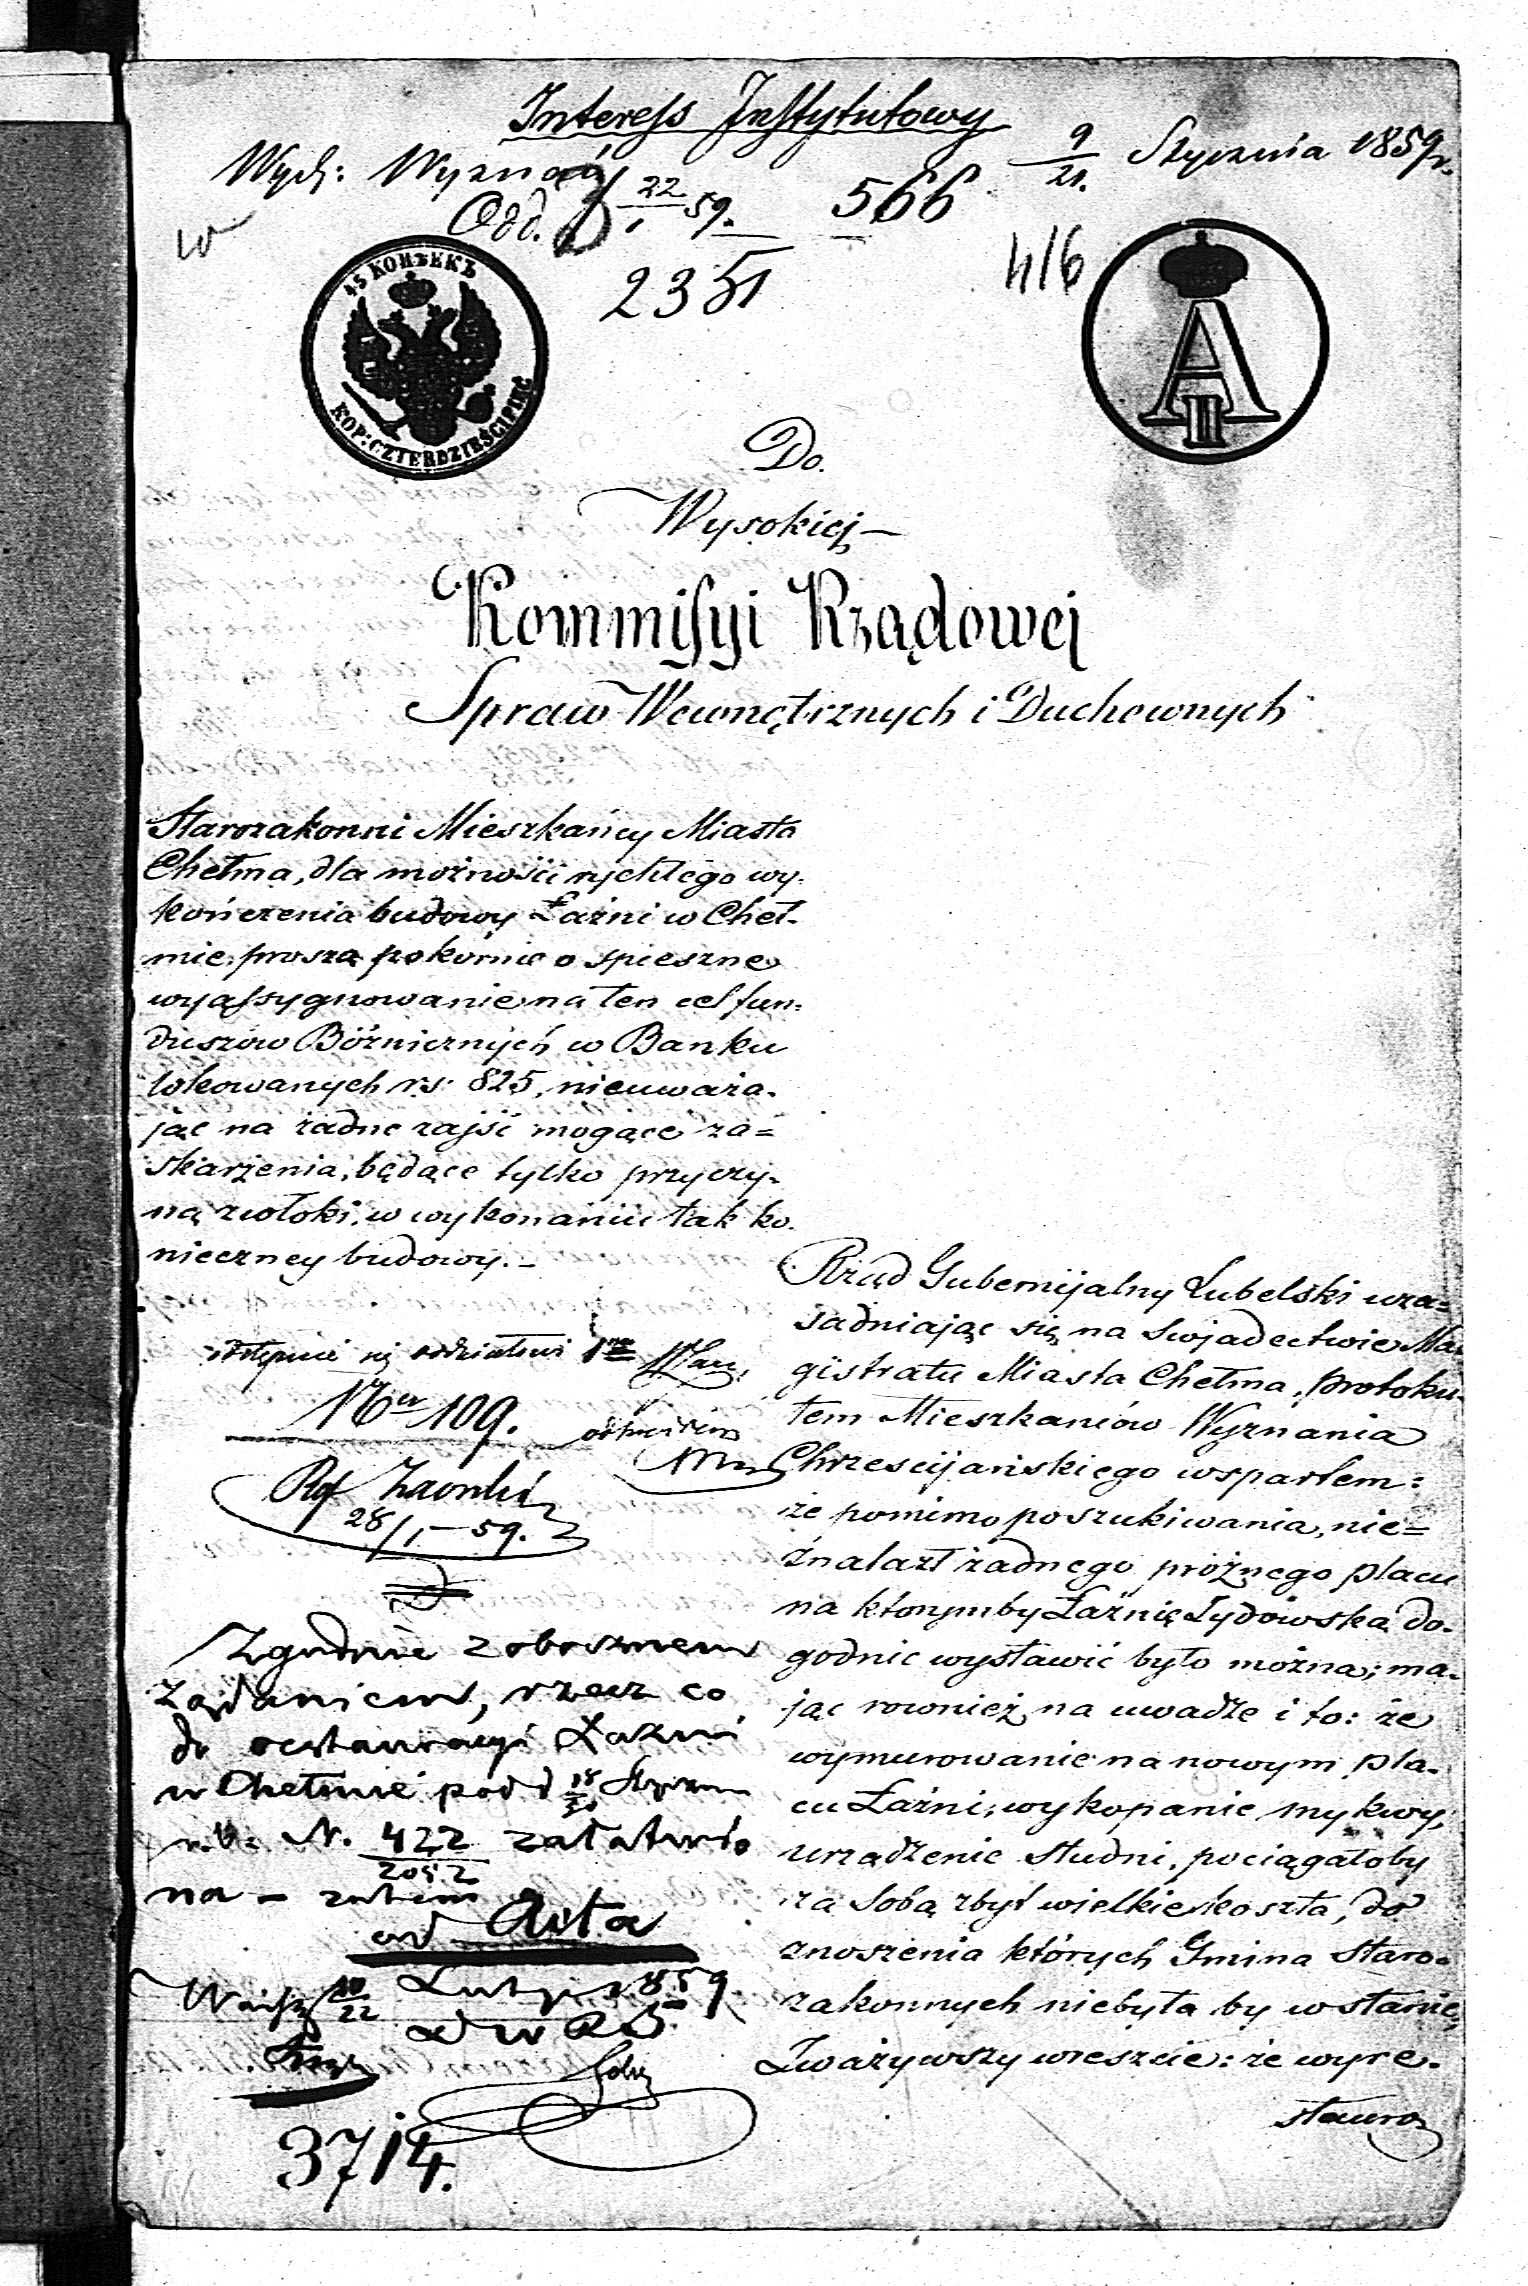 Interess Instytutowy
Wydz: Wyznań
9/21. Stycznia 1859 r.
Odd. 22/1 59. 566
2351
416
45 КОПѢЕКЪ
KOP: CZTERDZIEŚCI PIĘĆ
A II
Do.
Wysokiej
Kommissyi Rządowej
Spraw Wewnętrznych i Duchownych
Starozakonni Mieszkańcy Miasta
Chełma, dla możności rychłego wy-
kończenia budowy Łaźni w Cheł-
mie, proszą pokornie o spieszne
wyassygnowanie na ten cel fun-
duszów Bóźnicznych w Banku
lokowanych rs: 825, nieuważa-
jąc na żadne zajść mogące za=
skarżenia, będące tylko przyczy-
ną zwłoki, w wykonaniu tak ko-
nieczney budowy.-
Ner 109.
28/1 - 59.
Zgodnie z obocznem
żądaniem, rzecz co
do restauracyi Łaźni
w Chełmie pod d 18/30 Styczn
r.b: N. 422/2052 załatwio
na - zatem
ad Acta
Warsz 10/22 Lutego 1859
3714.
Rząd Gubernijalny Lubelski uza=
sadniając się na Swiadectwie Ma-
gistratu Miasta Chełma, protoku-
łem Mieszkańców Wyznania
Chrzescijańskiego wspartem:
że pomimo poszukiwania, nie=
znalazł żadnego próżnego placu
na którymby Łaźnię Żydowską do-
godnie wystawić było można; ma-
jąc rownież na uwadze i to: że
wymurowanie na nowym pla-
cu Łaźni, wykopanie mykwy,
urządzenie Studni, pociągałoby
za Sobą zbyt wielkie koszta, do
znoszenia których Gmina Staro-
zakonnych niebyła by w stanie,
Zważywszy wreszcie: że wyre-
staura